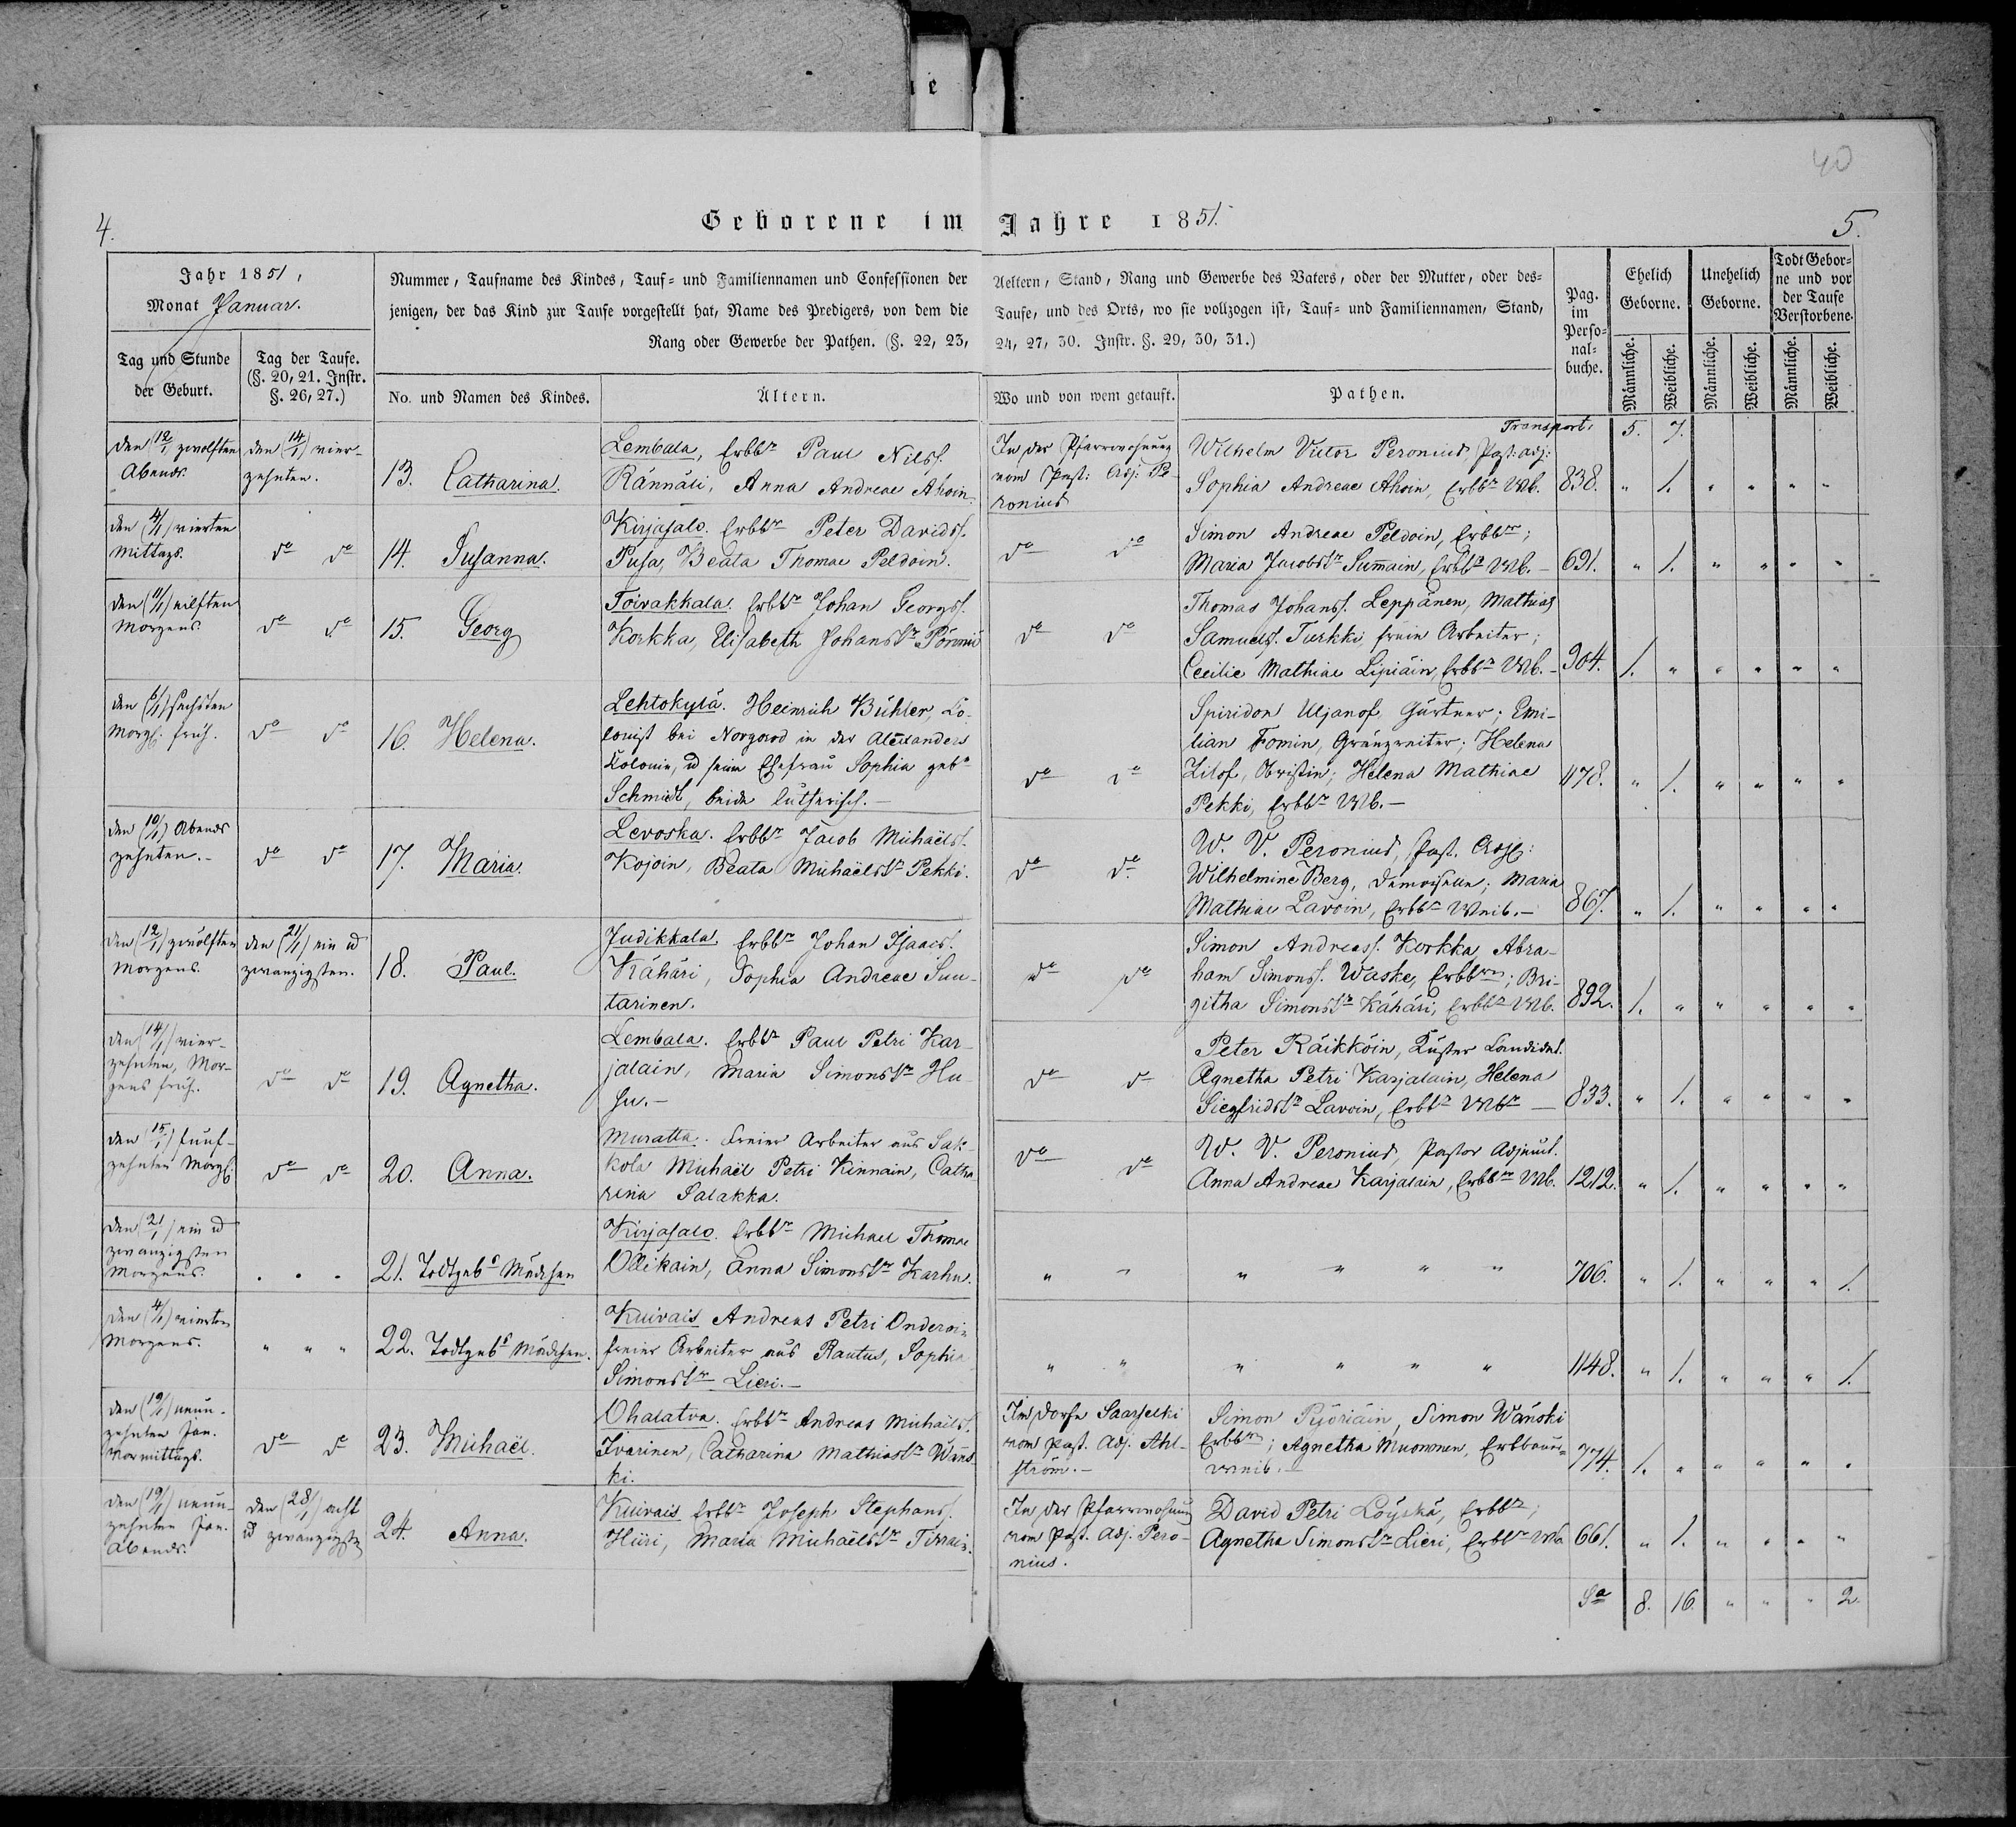 40
4.
Geborene im Jahre 1851.
5.
Jahr 1851,
Monat Januar.
Tag und Stunde
der Geburt.
Tag der Taufe.
(§. 20, 21. Instr.
§. 26, 27.)
Nummer, Taufname des Kindes, Tauf- und Familiennamen und Confessionen der Aeltern, Stand, Rang und Gewerbe des Vaters, oder der Mutter, oder des-
jenigen, der das Kind zur Taufe vorgestellt hat, Name des Predigers, von dem die Taufe, und des Orts, wo sie vollzogen ist, Tauf- und Familiennamen, Stand,
Rang oder Gewerbe der Pathen. (§. 22, 23, 24, 27, 30. Instr. §. 29, 30, 31.)
No. und Namen des Kindes.
Ältern.
Wo und von wem getauft.
Pathen.
Pag.
im
Perso-
nal-
buche.
Ehelich
Geborne.
Unehelich
Geborne.
Todt Gebor-
ne und vor
der Taufe
Verstorbene.
Männliche.
Weibliche.
Männliche.
Weibliche.
Männliche.
Weibliche.
Transport: 5. 7.
den (12/1) zwölften
Abends.
den (14/1) vier-
zehnten.
13. Catharina.
Lembala, Erbbr Paul Nilss.
Rännäli, Anna Andreae Ahoin.
In der Pfarrwohnung
vom Past: Adj: Pe-
ronius
Wilhelm Victor Peronius, Past: adj:
Sophia Andreae Ahoin, Erbbr Wb.
838. " 1. " " " "
den (4/1) vierten
Mittags.
do do
14. Susanna.
Kirjasalo. Erbbr Peter Davids.
Pusa, Beata Thomae Peldoin.
do do
Simon Andreae Peldoin, Erbbr;
Maria Jacobstr Sumain, Erbbr Wb. –
691. " 1. " " " "
den (11/1) eilften
Morgens.
do do
15. Georg
Toivakkala. Erbbr Johan Georgs.
Korkka, Elisabeth Johanstr
do do
Thomas Johans. Leppänen, Mathias
Samuels. Turkki freie Arbeiter;
Cecilie Mathiae Lipiäin, Erbbr Wb. –
904. 1. " " " " "
den (6/1) sechsten
Morg: früh.
do do
16. Helena.
Lehtokylä. Heinrich Bühler, Co-
lonist bei Norgorod in der Alexanders
Colonie, u seine Ehefrau Sophia geb.
Schmidt, beide lutherisch. –
do do
Spiridon Uljanof, Gärtner; Emi-
lian Fomin, Gränzreiter; Helena
Zilof, Obristin; Helena Mathiae
Pekki, Erbbr Wb. –
1178. " 1. " " " "
den (10/1) Abends
zehnten. –
do do
17. Maria.
Levoska. Erbbr Jacob Michaels.
Kojoin, Beata Michaëlstr Pekki.
do do
W. V. Peronius, Past. Adj:
Wilhelmine Berg, Demoiselle; Maria
Mathiae Lavoin, Erbbr Weib. –
867. " 1. " " " "
den (12/1) zwölften
Morgens.
den (21/1) ein u
zwanzigsten.
18. Paul.
Judikkala. Erbbr Johan Isaacs.
Kähäri, Sophia Andreae Suu-
tarinen.
do do
Simon Andreass. Korkka, Abra-
ham Simons. Waske, Erbbrn; Bri-
githa Simonstr Kähäri, Erbbr Wb.
892. 1. " " " " "
den (14/1) vier-
zehnten, Mor-
gens früh.
do do
19. Agnetha.
Lembala. Erbbr Paul Petri Kar-
jalain, Maria Simonstr Hu-
su. –
do do
Peter Räikköin, Küster Candidat.
Agnetha Petri Karjalain, Helena
Siegfridstr Lavoin, Erbbr Wbr –
833. " 1. " " " "
den (15/1) fünf-
zehnten Morg:
do do
20. Anna.
Muratta. Freier Arbeiter aus Sak-
kola Michaël Petri Kinnain, Catha-
rina Salakka.
do do
W. V. Peronius, Pastor Adjunct.
Anna Andreae Karjalain, Erbbr Wb.
1212. " 1. " " " "
den (21/1) ein u
zwanzigsten
Morgens.
" " "
21. Todtgebs Mädchen
Kirjasalo. Erbbr Michael Thomae
Ollikain, Anna Simonstr Karhu.
" " " " " "
706. " 1. " " " 1.
den (4/1) vierten
Morgens.
" " "
22. Todtgebs Mädchen.
Kuivais Andreas Petri
freier Arbeiter aus Rautus, Sophia
Simonstr Lieri. –
" " " " " "
1148. " 1. " " " 1.
den (19/1) neun-
zehnten Jan.
Vormittags.
do do
23. Michaël.
Ohalatva. Erbbr Andreas Michaels.
Ivarinen, Catharina Mathiastr Wäns-
ki.
Im Dorfe Saarselki
vom Past. Adj. Ahl-
ström. –
Simon Pyöriäin, Simon Wänski
Erbbrn; Agnetha Muonnen, Erbbauer-
weib. –
774. 1. " " " " "
den (19/1) neun-
zehnten Jan.
Abends.
den (28/1) acht
u zwanzigsten
24. Anna.
Kuivais Erbbr Joseph Stephans.
Hüri, Maria Michaëlstr
In der Pfarrwohnung
vom Past. Adj. Pero-
nius.
David Petri Löyskä, Erbbr;
Agnetha Simonstr Lieri, Erbbr Wb
661. " 1. " " " "
Sa 8. 16. " " " 2.